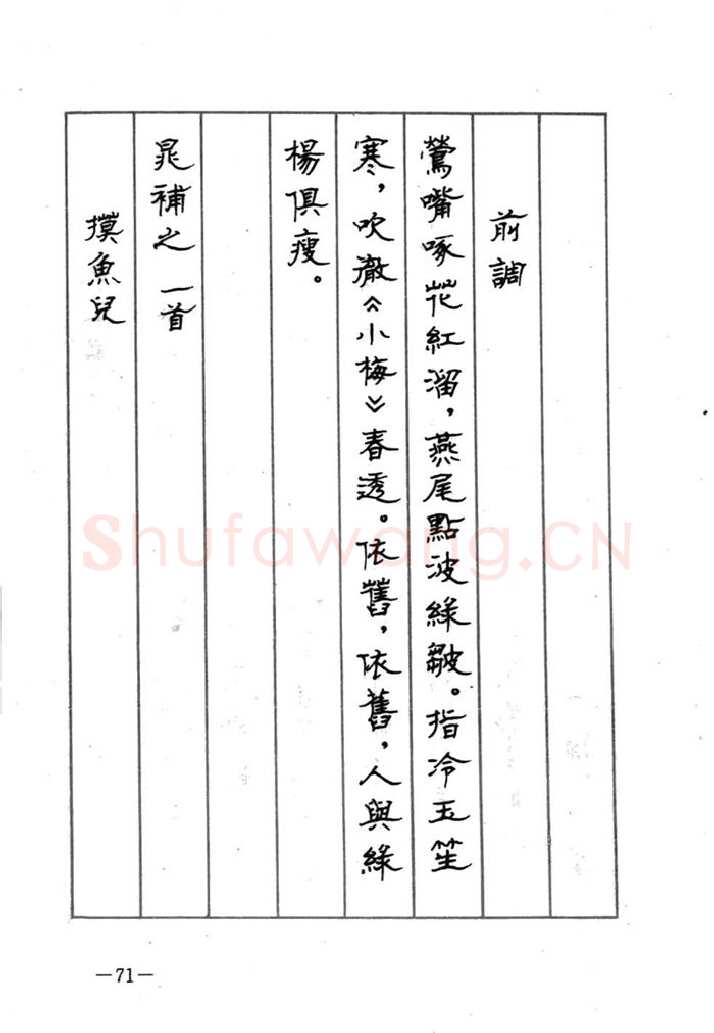 前調
鶯嘴啄花紅溜，燕尾點波綠皺。指冷玉笙
寒，吹徹《小梅》春透。依舊，依舊，人與綠
楊俱瘦。
晁補之一首
摸魚兒
Shufawang.CN
—71—